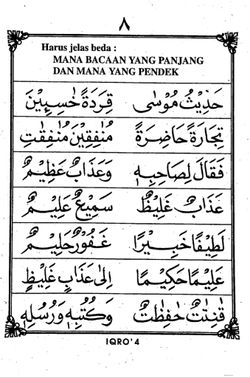 ٨
Harus jelas beda :
MANA BACAAN YANG PANJANG
DAN MANA YANG PENDEK
حَدِيْثُ مُوْسٰى قِرَدَةً خٰسِـِٔيْنَ
تِجَارَةً حَاضِرَةً مُنٰفِقِيْنَ مُنٰفِقٰتِ
فَقَالَ لِصَاحِبِهٖ وَعَذَابٌ عَظِيْمٌ
عَذَابٌ غَلِيْظٌ سَمِيْعٌ عَلِيْمٌ
لَطِيْفًا خَبِيْرًا غَفُوْرٌ حَلِيْمٌ
عَلِيْمًا حَكِيْمًا اِلٰى عَذَابٍ غَلِيْظٍ
قٰنِتٰتٌ حٰفِظٰتٌ وَكُتُبِهٖ وَرُسُلِهٖ
IQRO' 4